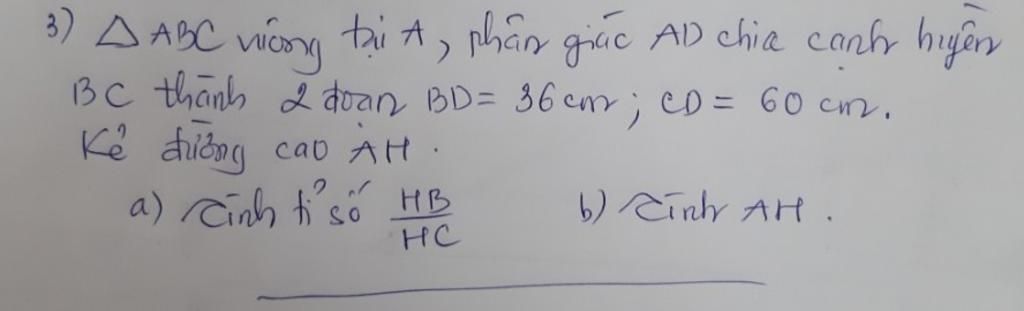 3) △ABC vuông tại A, phân giác AD chia cạnh huyền
BC thành 2 đoạn BD = 36 cm; CD = 60 cm.
Kẻ đường cao AH.
a) Tính tỉ số HB/HC b) Tính AH.